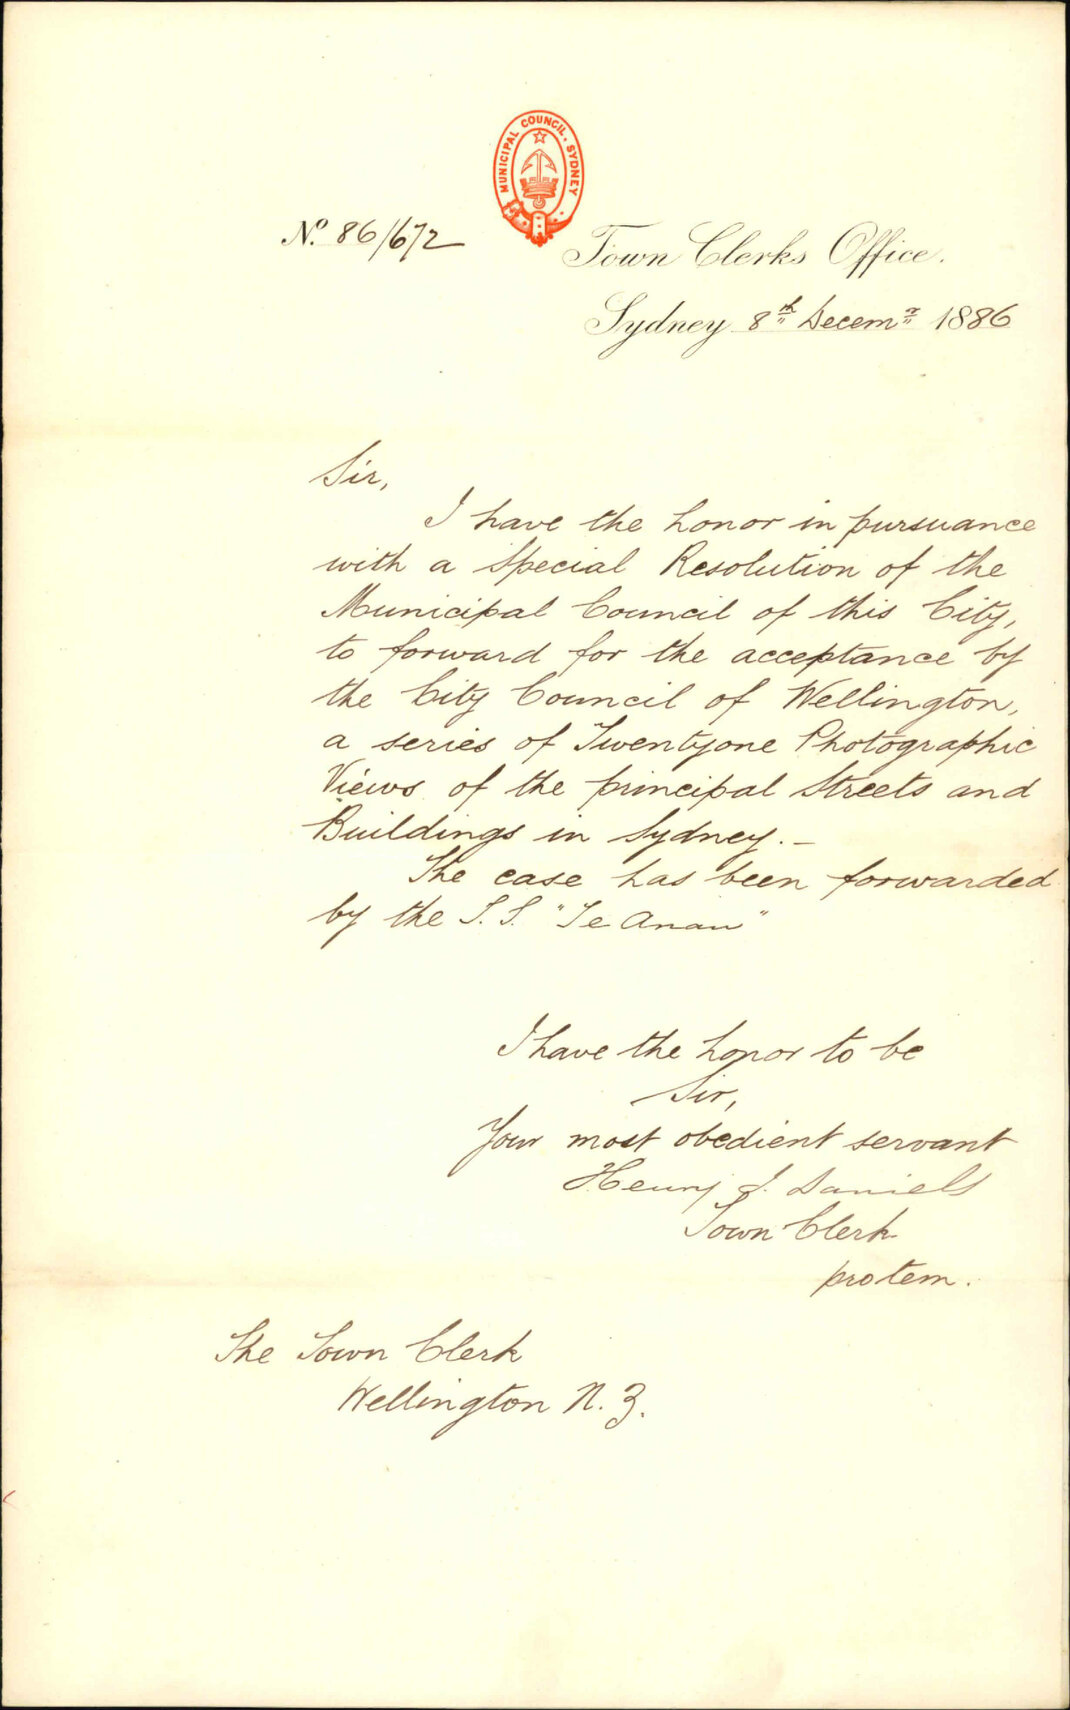 MUNICIPAL COUNCIL. SYDNEY
No. 86/672
Town Clerks Office.
Sydney 8th Decemr 1886
Sir,
I have the honor in pursuance
with a Special Resolution of the
Municipal Council of this City,
to forward for the acceptance by
the City Council of Wellington,
a series of Twentyone Photographic
Views of the principal Streets and
Buildings in Sydney. –
The case has been forwarded
by the S. S. "Te Anau"
I have the honor to be
Sir,
Your most obedient servant
Henry J. Daniels
Town Clerk
pro tem.
The Town Clerk
Wellington N. Z.